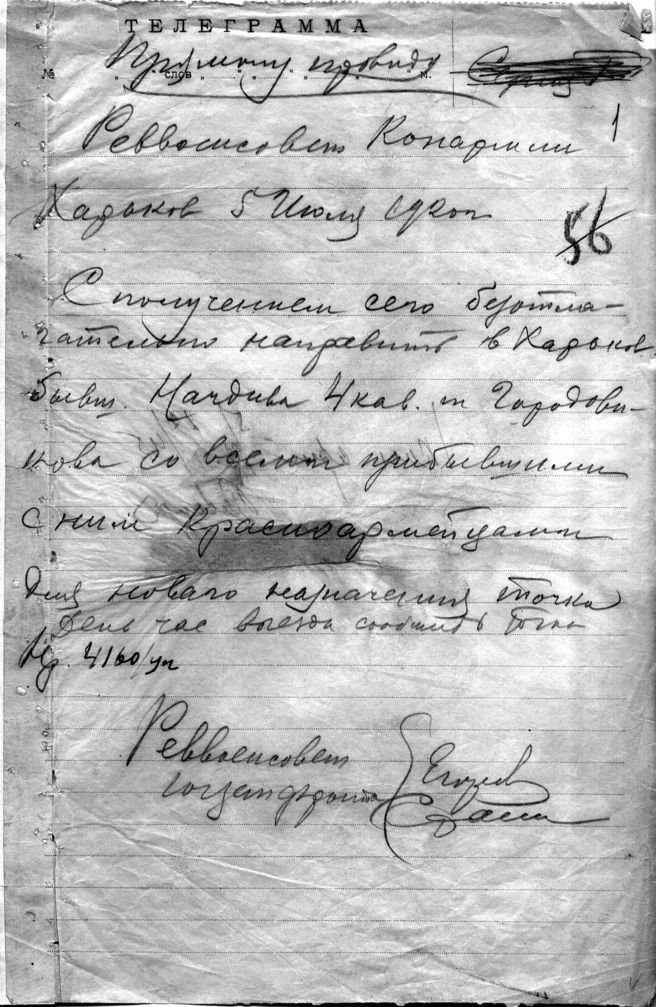 ТЕЛЕГРАММА
Прямому проводу
№ слов м.
1
Реввоенсовет Конармии
Харьков 5 Июля 1920г
56
С получением сего безотла-
гательно направить в Харьков
бывш. Начдива 4 кав. т Городови-
кова со всеми прибывшими
с ним Красноармейцами
для новаго назначения точка
День час выезда сообщить точка
Нр. 4160/уп
Реввоенсовет Егоров
Югозапфронта